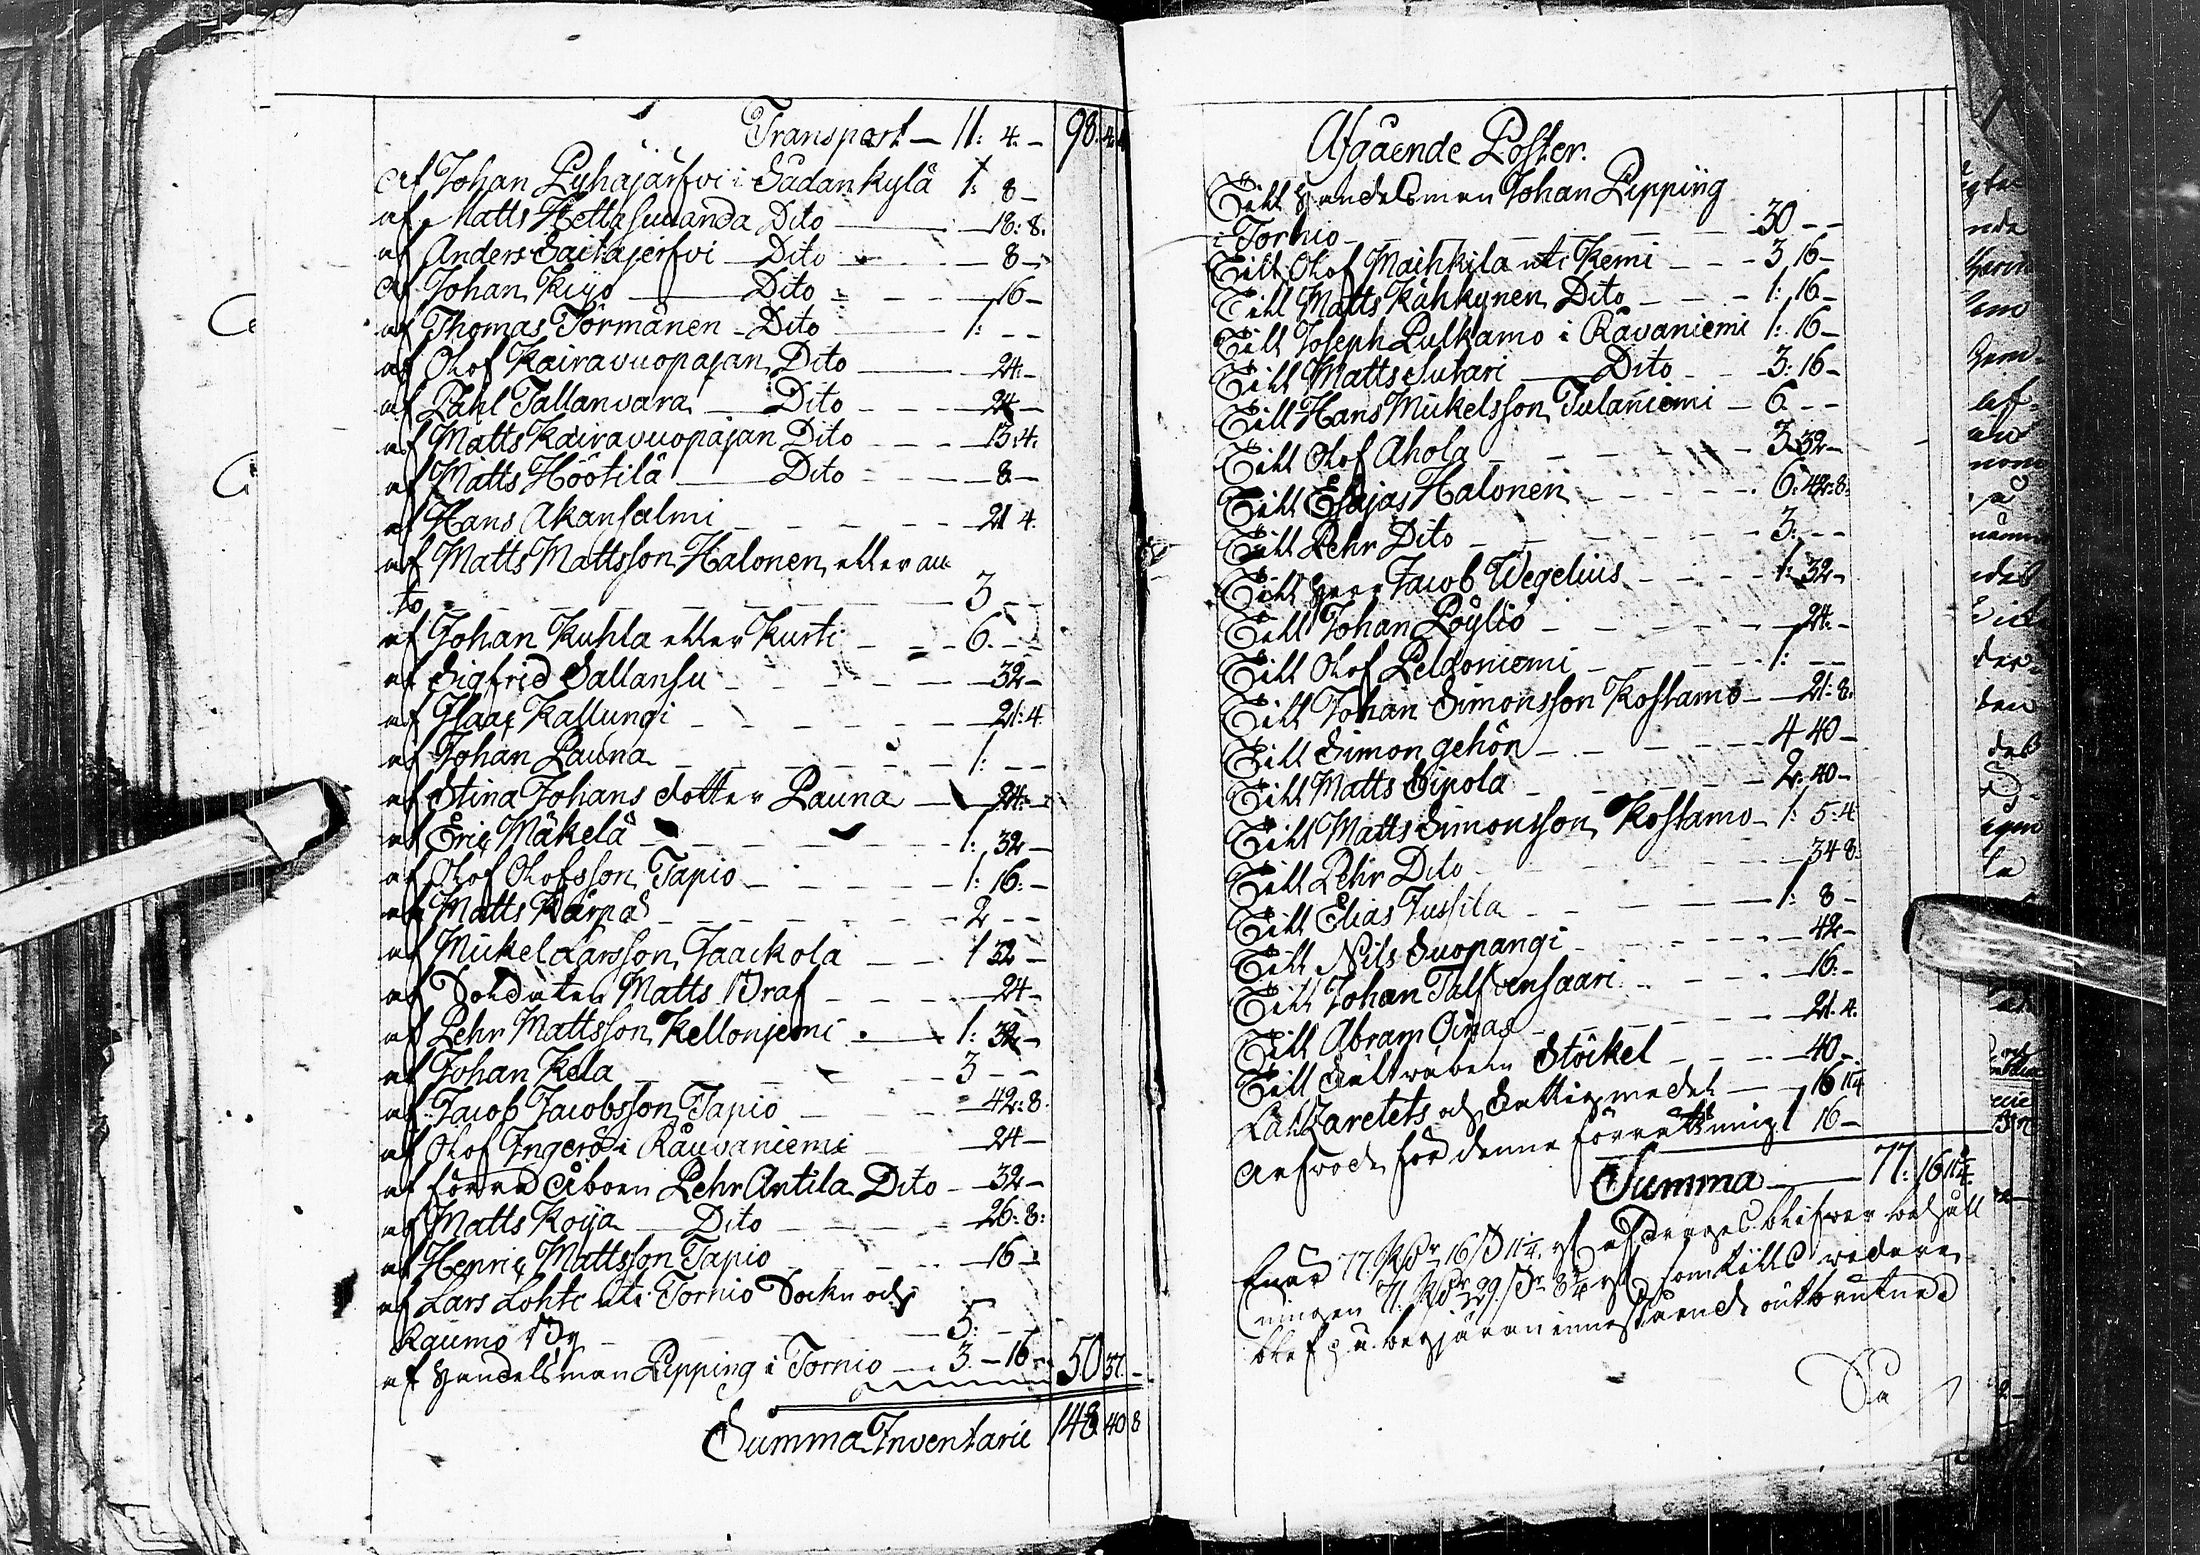 Transport — 11: 4. — 98. 4.
af Johan Pyhäjärfvi i Sådankylä 1: 8 —
af Matts Hettasuuanda Dito — 18: 8.
af Anders Saitajerfvi — Dito — 8 —
af Johan Kiyo — Dito — 16 —
af Thomas Törmänen — Dito — 1: — —
af Olof Kairavuopajan Dito — 24. —
af Påhl Tallanvara — Dito — 24 —
af Matts Kairavuopajan Dito — 13: 4.
af Matts Höötilä — Dito — 8 —
af Hans Akansalmi — 21 4.
af Matts Mattsson Halonen, eller au
to — 3 — —
af Johan Kuhla eller Kurti — 6. — —
af Sigfrid Sallansu — 32 —
af Isaac Kallungi — 21: 4
af Johan Pauna — 1: — —
af Stina Johans dotter Pauna — 24: —
af Eric Mäkelä — 1: 32 —
af Olof Olofsson Tapio — 1: 16: —
af Matts Kärpä — 2 — —
af Mickel Larsson Jaackola — 1 32 —
af Soldaten Matts Braf — 24 —
af Pehr Mattsson Kellonjemi — 1: 32 —
af Johan Kela — 3 — —
af Jacob Jacobsson Tapio — 42: 8.
af Olof Ingerö i Råuvaniemi — 24 —
af förra Åboen Pehr Antila Dito — 32 —
af Matts Koija — Dito — 26: 8:
af Henric Mattsson Tapio — 16 —
af Lars Lohti uti Tornio Sockn och
Raumo By — 5: — —
af Handelsman Pipping i Tornio — 3. — 16 — 50 37. —
Summa Inventarii 148. 40 8
Afgående Poster.
Till Handelsman Johan Pipping
i Tornio — 30 — —
Till Olof Maihkila uti Kemi — 3 16 —
Till Matts Kähkynen Dito — 1: 16 —
Till Joseph Pulkamo i Råvaniemi 1: 16 —
Till Matts Sutari — Dito — 3: 16 —
Till Hans Mickelsson Tulaniemi — 6. — —
Till Olof Ahola — 3 32 —
Till Esajas Halonen — 6: 42: 8.
Till Pehr Dito — 3: — —
Till Herr Jacob Wegelius — 1: 32 —
Till Johan Pöyliö — 24. —
Till Olof Peldoniemi — 1: — —
Till Johan Simonsson Kostamo — 21: 8.
Till Simon gehön — 4 40 —
Till Matts Sipola — 2: 40 —
Till Matts Simonsson Kostamo — 1: 5: 4
Till Pehr Dito — 34 8.
Till Elias Jussila — 1: 8 —
Till Nils Suopangi — 42 —
Till Johan Talfvensaari — 16: —
Till Abram Oinas — 21. 4.
Till Stöckel — 40 —
Lähtzaretets och Fattigmedel — 16 11¼
Arfvode för denne förrättning 1 16 —
Summa — 77: 16 11¼
77. Rdr 16 s 11¼ rst blifver behåll
ningen 71. Rdr 29. s 8¾ rst som
blef innestående